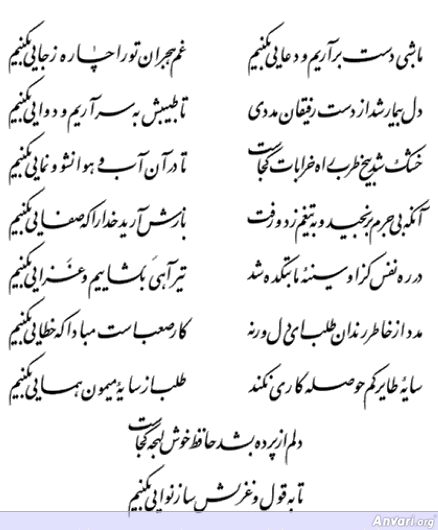 ما شبی دست برآریم و دعایی بکنیم غم هجران تو را چاره ز جایی بکنیم
دل بیمار شد از دست رفیقان مددی تا طبیبش به سر آریم و دوایی بکنیم
خشک شد بیخ طرب راه خرابات کجاست تا در آن آب و هوا نشو و نمایی بکنیم
آنکه بی جرم برنجید و به تیغم زد و رفت بازش آرید خدا را که صفایی بکنیم
در ره نفس کزو سینهٔ ما بتکده شد تیر آهی بگشاییم و غزایی بکنیم
مدد از خاطر رندان طلب ای دل ورنه کار صعب است مبادا که خطایی بکنیم
سایهٔ طایر کم حوصله کاری نکند طلب از سایهٔ میمون همایی بکنیم
دلم از پرده بشد حافظ خوش لهجه کجاست
تا به قول و غزلش ساز نوایی بکنیم
Anvari.org